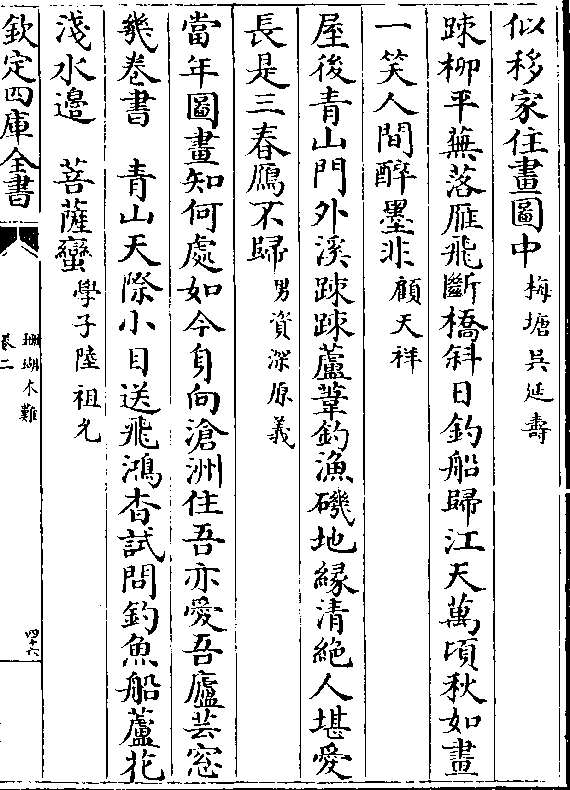 似移家住畫圖中　梅塘吳延壽
踈柳平蕪落雁飛斷橋斜日釣船歸江天萬頃秋如畫
一笑人間醉墨非　顧天祥
屋後青山門外溪踈踈蘆葦釣漁磯地緣清絶人堪愛
長是三春鴈不歸　男資深原義
當年圖畫知何處如今身向滄洲住吾亦愛吾廬芸窓
幾卷書　青山天際小目送飛鴻杳試問釣魚船蘆花
淺水邊　菩薩蠻　學子陸祖允
欽定四庫全書
珊瑚木難
卷二
四十六